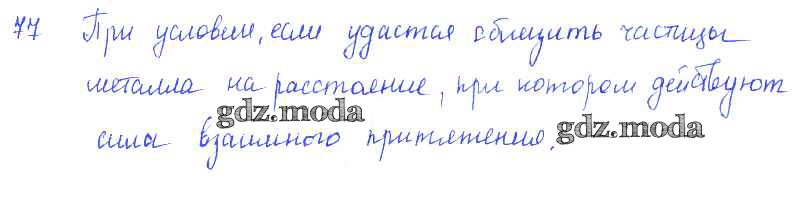 77 При условии, если удастся сблизить частицы
металла на расстояние, при котором действуют
gdz.moda
сила взаимного притяжения.
gdz.moda